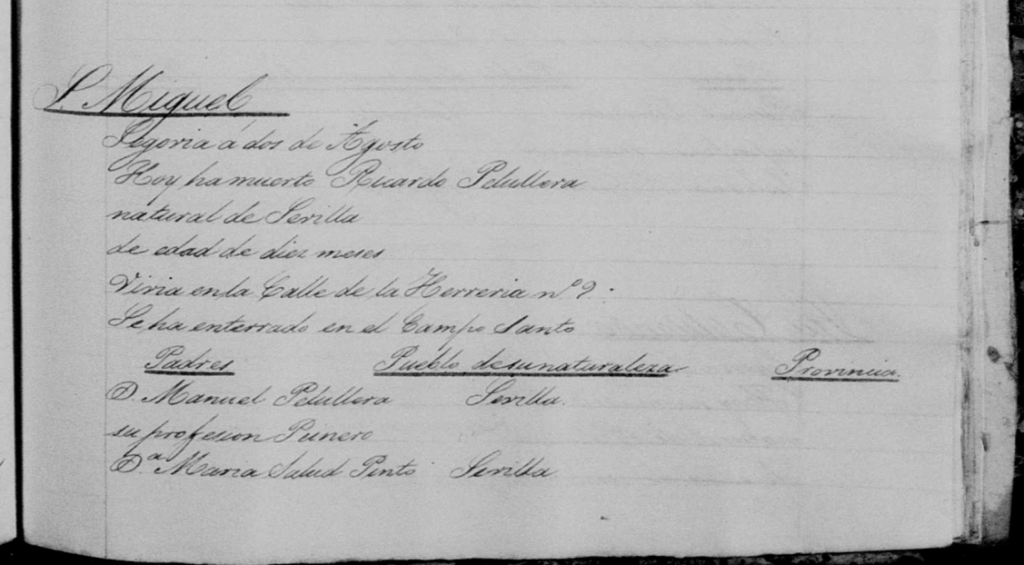 S. Miguel
Segovia á dos de Agosto
Hoy ha muerto Ricardo Pelullera
natural de Sevilla
de edad de diez meses
Vivia en la Calle de la Herreria nº 9.
Se ha enterrado en el Campo Santo
Padres Pueblo de su naturaleza Provincia.
D. Manuel Pelullera Sevilla.
su profesion Punero
Dª Maria Salud Pinto Sevilla